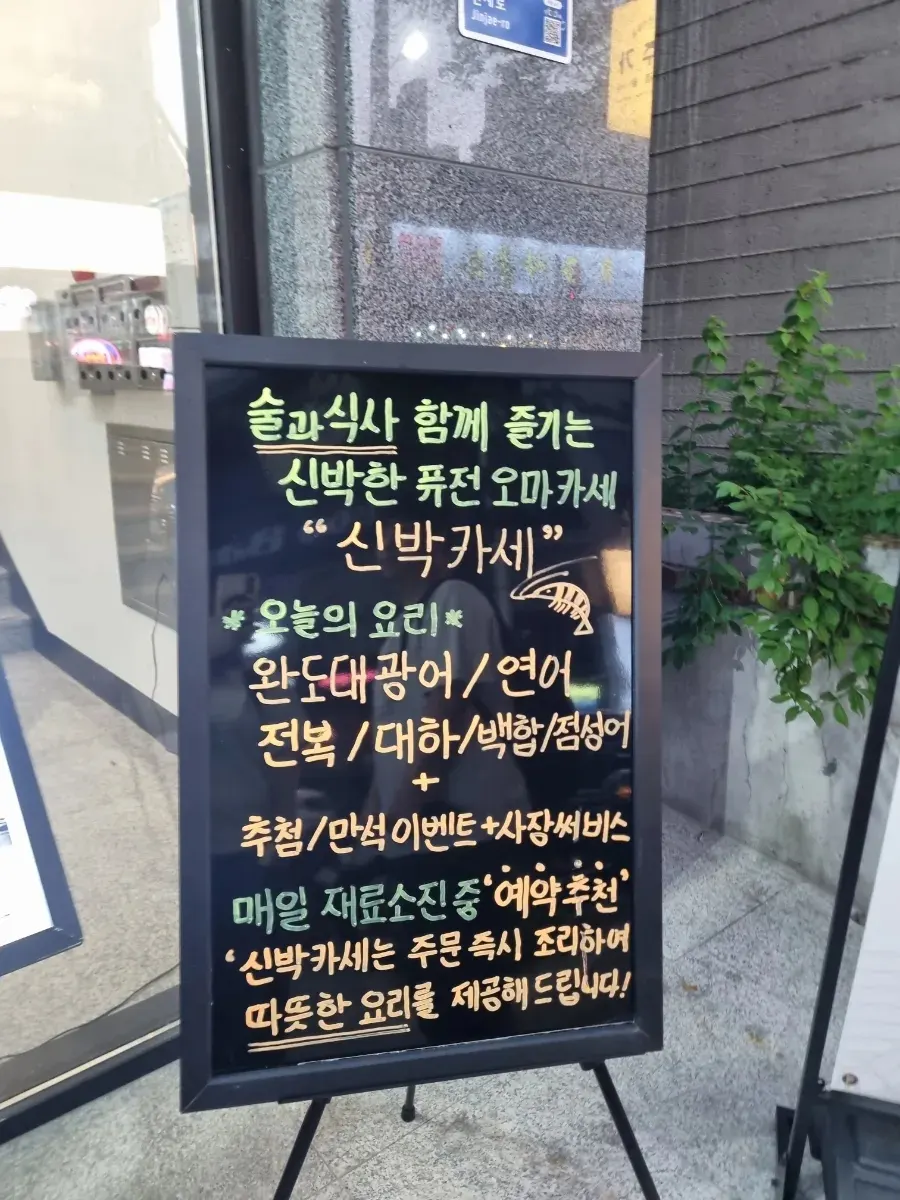 Jinjae-ro
술과식사 함께 즐기는
신박한 퓨전 오마카세
“신박카세”
*오늘의 요리*
완도대광어/연어
전복/대하/백합/점성어
+
추첨/만석이벤트+사장써비스
매일 재료소진중 ‘예약추천’
‘신박카세는 주문 즉시 조리하여
따뜻한 요리를 제공해드립니다!